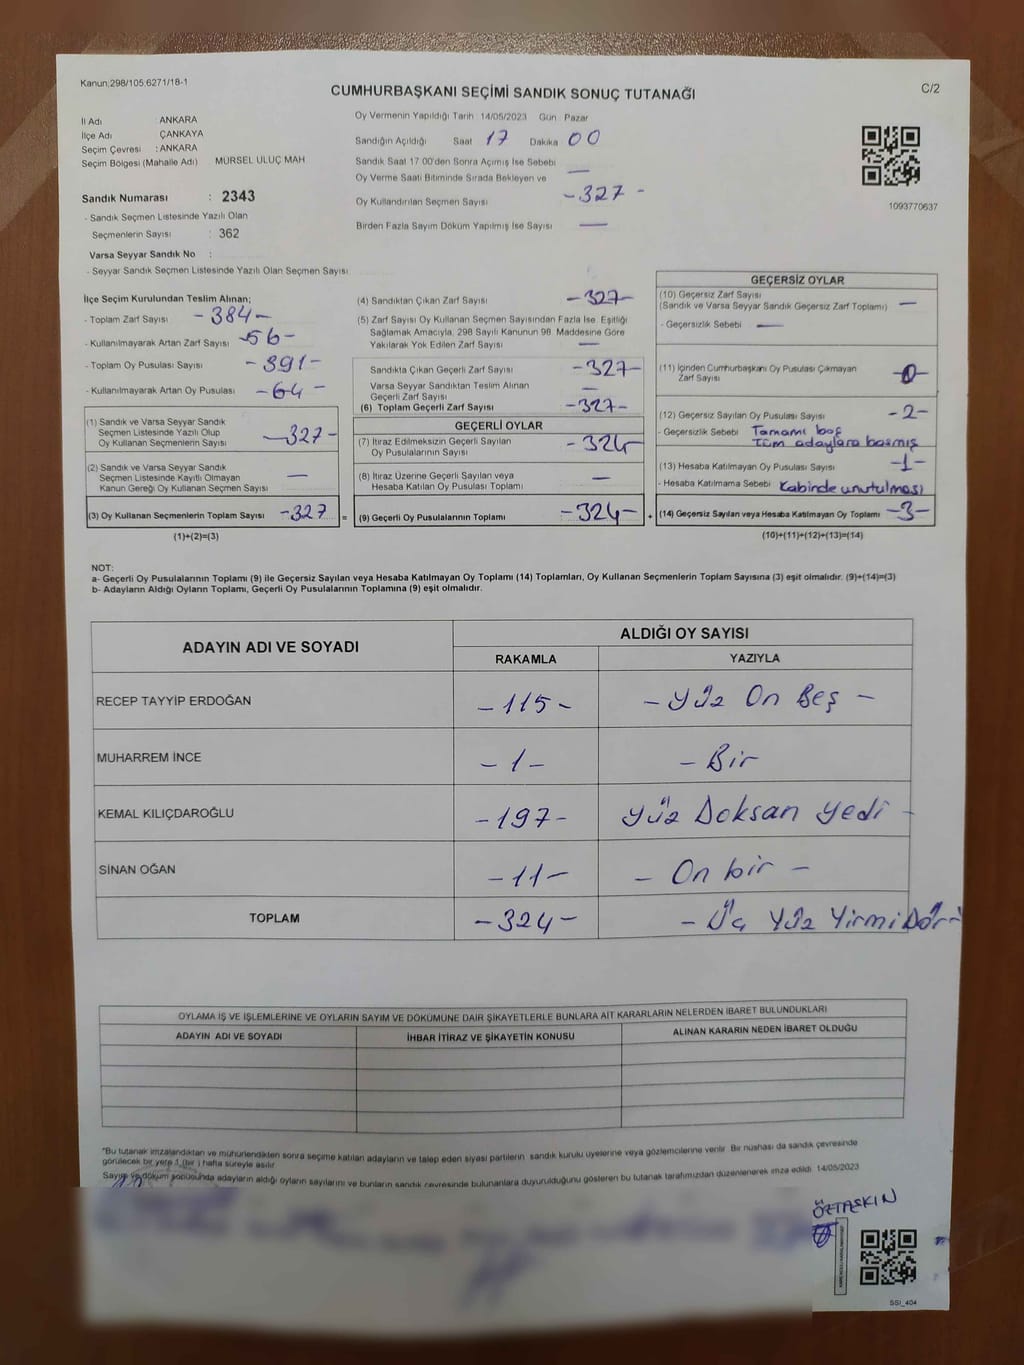 Kanun:298/105:6271/18-1
C/2
CUMHURBAŞKANI SEÇİMİ SANDIK SONUÇ TUTANAĞI
İl Adı : ANKARA
İlçe Adı : ÇANKAYA
Seçim Çevresi : ANKARA
Seçim Bölgesi (Mahalle Adı) MÜRSEL ULUÇ MAH
Sandık Numarası : 2343
- Sandık Seçmen Listesinde Yazılı Olan
Seçmenlerin Sayısı : 362
Varsa Seyyar Sandık No :
- Seyyar Sandık Seçmen Listesinde Yazılı Olan Seçmen Sayısı
Oy Vermenin Yapıldığı Tarih 14/05/2023 Gün Pazar
Sandığın Açıldığı Saat 17 Dakika 00
Sandık Saat 17:00'den Sonra Açımış İse Sebebi —
Oy Verme Saati Bitiminde Sırada Bekleyen ve
Oy Kullandırılan Seçmen Sayısı -327-
Birden Fazla Sayım Döküm Yapılmış İse Sayısı —
1093770637
İlçe Seçim Kurulundan Teslim Alınan;
- Toplam Zarf Sayısı -384-
- Kullanılmayarak Artan Zarf Sayısı -56-
- Toplam Oy Pusulası Sayısı -391-
- Kullanılmayarak Artan Oy Pusulası -64-
(1) Sandık ve Varsa Seyyar Sandık
Seçmen Listesinde Yazılı Olup
Oy Kullanan Seçmenlerin Sayısı -327-
(2) Sandık ve Varsa Seyyar Sandık
Seçmen Listesinde Kayıtlı Olmayan
Kanun Gereği Oy Kullanan Seçmen Sayısı —
(3) Oy Kullanan Seçmenlerin Toplam Sayısı -327 =
(1)+(2)=(3)
(4) Sandıktan Çıkan Zarf Sayısı -327-
(5) Zarf Sayısı Oy Kullanan Seçmen Sayısından Fazla İse, Eşitliği
Sağlamak Amacıyla, 298 Sayılı Kanunun 98. Maddesine Göre
Yakılarak Yok Edilen Zarf Sayısı —
Sandıkta Çıkan Geçerli Zarf Sayısı -327-
Varsa Seyyar Sandıktan Teslim Alınan
Geçerli Zarf Sayısı —
(6) Toplam Geçerli Zarf Sayısı -327-
GEÇERLİ OYLAR
(7) İtiraz Edilmeksizin Geçerli Sayılan
Oy Pusulalarının Sayısı -324
(8) İtiraz Üzerine Geçerli Sayılan veya
Hesaba Katılan Oy Pusulası Toplamı —
(9) Geçerli Oy Pusulalarının Toplamı -324- +
GEÇERSİZ OYLAR
(10) Geçersiz Zarf Sayısı
(Sandık ve Varsa Seyyar Sandık Geçersiz Zarf Toplamı) —
- Geçersizlik Sebebi —
(11) İçinden Cumhurbaşkanı Oy Pusulası Çıkmayan
Zarf Sayısı -0-
(12) Geçersiz Sayılan Oy Pusulası Sayısı -2-
- Geçersizlik Sebebi Tamamı boş
Tüm adaylara basmış
(13) Hesaba Katılmayan Oy Pusulası Sayısı -1-
- Hesaba Katılmama Sebebi Kabinde unutulması
(14) Geçersiz Sayılan veya Hesaba Katılmayan Oy Toplamı -3-
(10)+(11)+(12)+(13)=(14)
NOT:
a- Geçerli Oy Pusulalarının Toplamı (9) ile Geçersiz Sayılan veya Hesaba Katılmayan Oy Toplamı (14) Toplamları, Oy Kullanan Seçmenlerin Toplam Sayısına (3) eşit olmalıdır. (9)+(14)=(3)
b- Adayların Aldığı Oyların Toplamı, Geçerli Oy Pusulalarının Toplamına (9) eşit olmalıdır.
ADAYIN ADI VE SOYADI ALDIĞI OY SAYISI
RAKAMLA YAZIYLA
RECEP TAYYİP ERDOĞAN -115- -Yüz On Beş -
MUHARREM İNCE -1- -Bir
KEMAL KILIÇDAROĞLU -197- Yüz Doksan Yedi -
SİNAN OĞAN -11- - On bir -
TOPLAM -324- - Üç Yüz Yirmi Dört
OYLAMA İŞ VE İŞLEMLERİNE VE OYLARIN SAYIM VE DÖKÜMÜNE DAİR ŞİKAYETLERLE BUNLARA AİT KARARLARIN NELERDEN İBARET BULUNDUKLARI
ADAYIN ADI VE SOYADI İHBAR İTİRAZ VE ŞİKAYETİN KONUSU ALINAN KARARIN NEDEN İBARET OLDUĞU
"Bu tutanak imzalandıktan ve mühürlendikten sonra seçime katılan adayların ve talep eden siyasi partilerin sandık kurulu üyelerine veya gözlemcilerine verilir. Bir nüshası da sandık çevresinde
görülecek bir yere 1 (bir) hafta süreyle asılır.
Sayım ve döküm sonucunda adayların aldığı oyların sayılarını ve bunların sandık çevresinde bulunanlara duyurulduğunu gösteren bu tutanak tarafımızdan düzenlenerek imza edildi. 14/05/2023
ÖZTAŞKIN
SSI_404